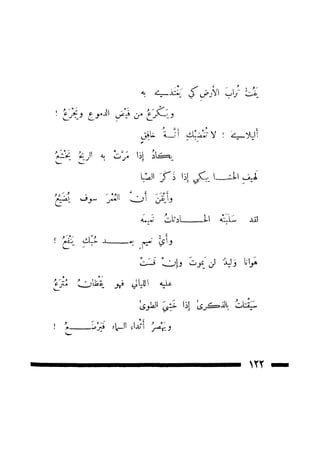 يَفُتُّ تُرابَ الأرضِ كي يَغْتذي به
ويَكْرَعُ من فَيْضِ الدموع ويَجْرَعُ !
أليلايَ ! لا تُمْضِيكِ أنَّةُ خافِقٍ
يكادُ إذا مَرَّتْ به الريحُ يَخْشَعُ
لهيفِ الحَشا يبكي إذا ذَكَرَ الصِّبا
وأيْقَنَ أنَّ العُمْرَ سوف يُضَيَّعُ
لقد سَلَبَتْه الحادثاتُ نَعيمَه
وأيُّ نعيمٍ بعد حُبِّكِ يَنْفَعُ !
هَوانا وَليدٌ لن يَموتَ وإنْ قَسَتْ
عليه الليالي فهو يَقْظانُ مُتْرَعُ
سَيَقْتاتُ بالذكرى إذا خَشِيَ الطوى
ويَهْصِرُ أثداءَ السماءِ فَيَرْضَعُ !
١٢٢